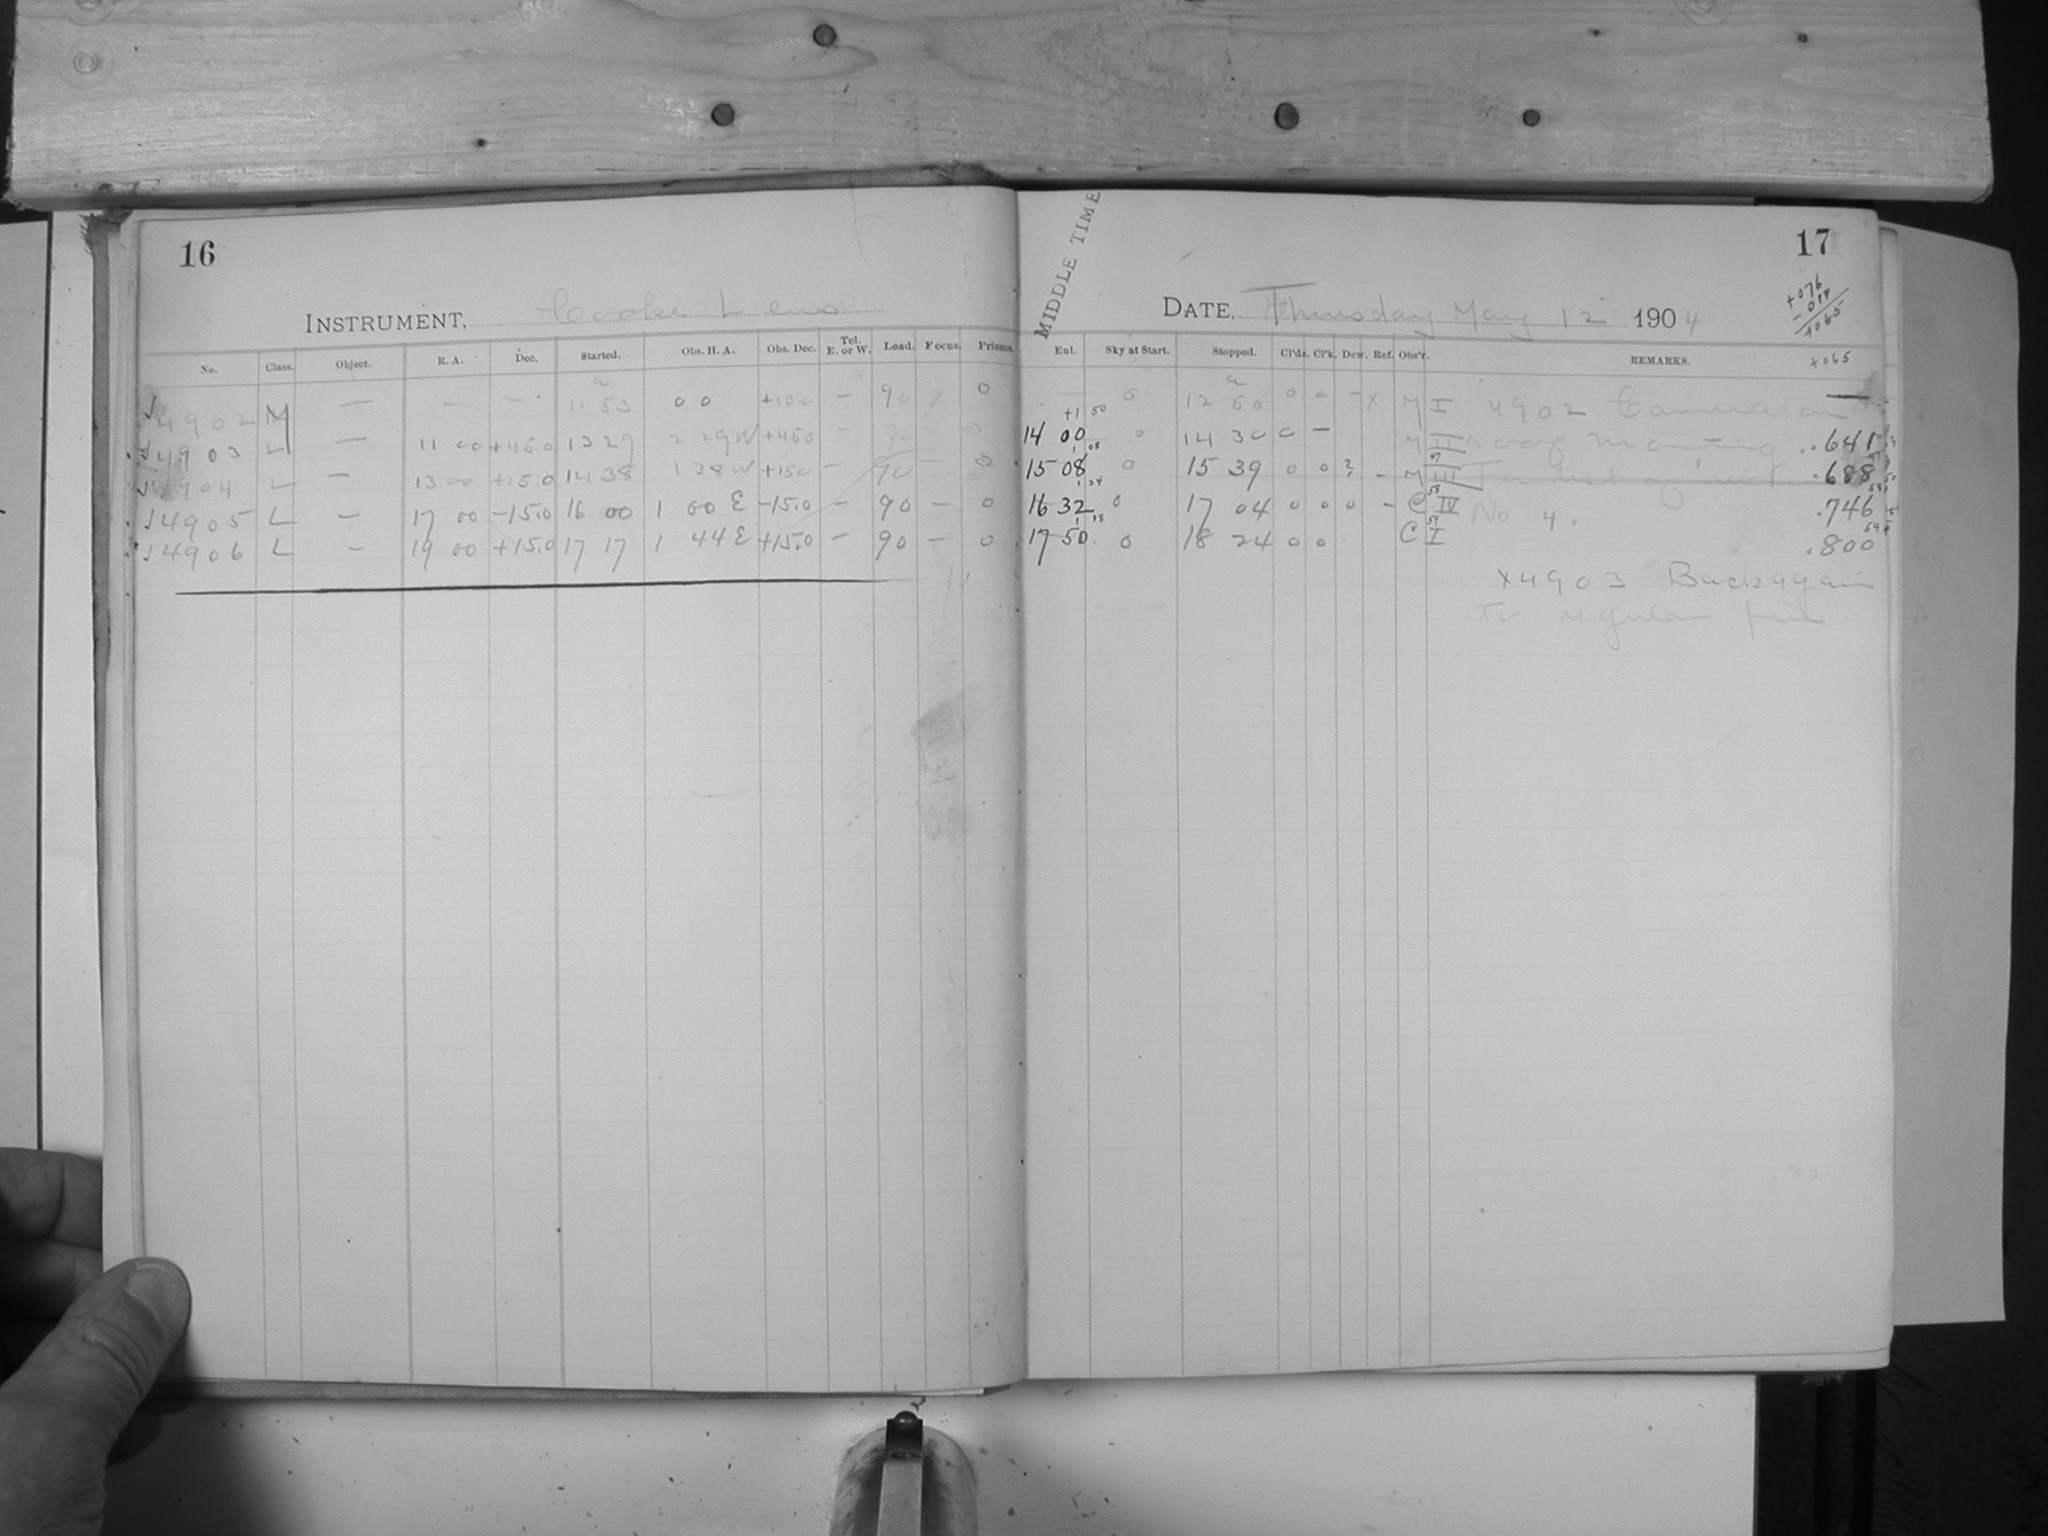 16
INSTRUMENT, Cooke Lens
No. Class. Object. R. A. Dec. Started. Obs. H. A. Obs. Dec. Tel. E. or W. Load. Focus. Prisms.
4902 M — — — 11 53 0 0 +100 — 90 0
4903 L — 11 00 +45.0 13 29 2 29W +450 — 0
4904 L — 13 00 +15.0 14 38 1 38W +150 — 90 — 0
4905 L — 17 00 −15.0 16 00 1 00 E −15.0 — 90 — 0
4906 L — 19 00 +15.0 17 17 1 44E +15.0 — 90 — 0
MIDDLE TIME
17
DATE, Thursday May 12 1904
+076
+065
+065
Enl. Sky at Start. Stopped. Cl'ds. Cl'k. Dew. Ref. Obs'r. REMARKS.
0 12 50 0 0 — X M I 4902
+1 50
14 00 0 14 30 0 — M II roof mounting .641
1 08
15 08 0 15 39 0 0 ? — M III .688
1 24
16 32 0 17 04 0 0 0 — C IV No 4. .746
1 18
17 50 0 18 24 0 0 C I .800
X4903 Back again
to regular pier